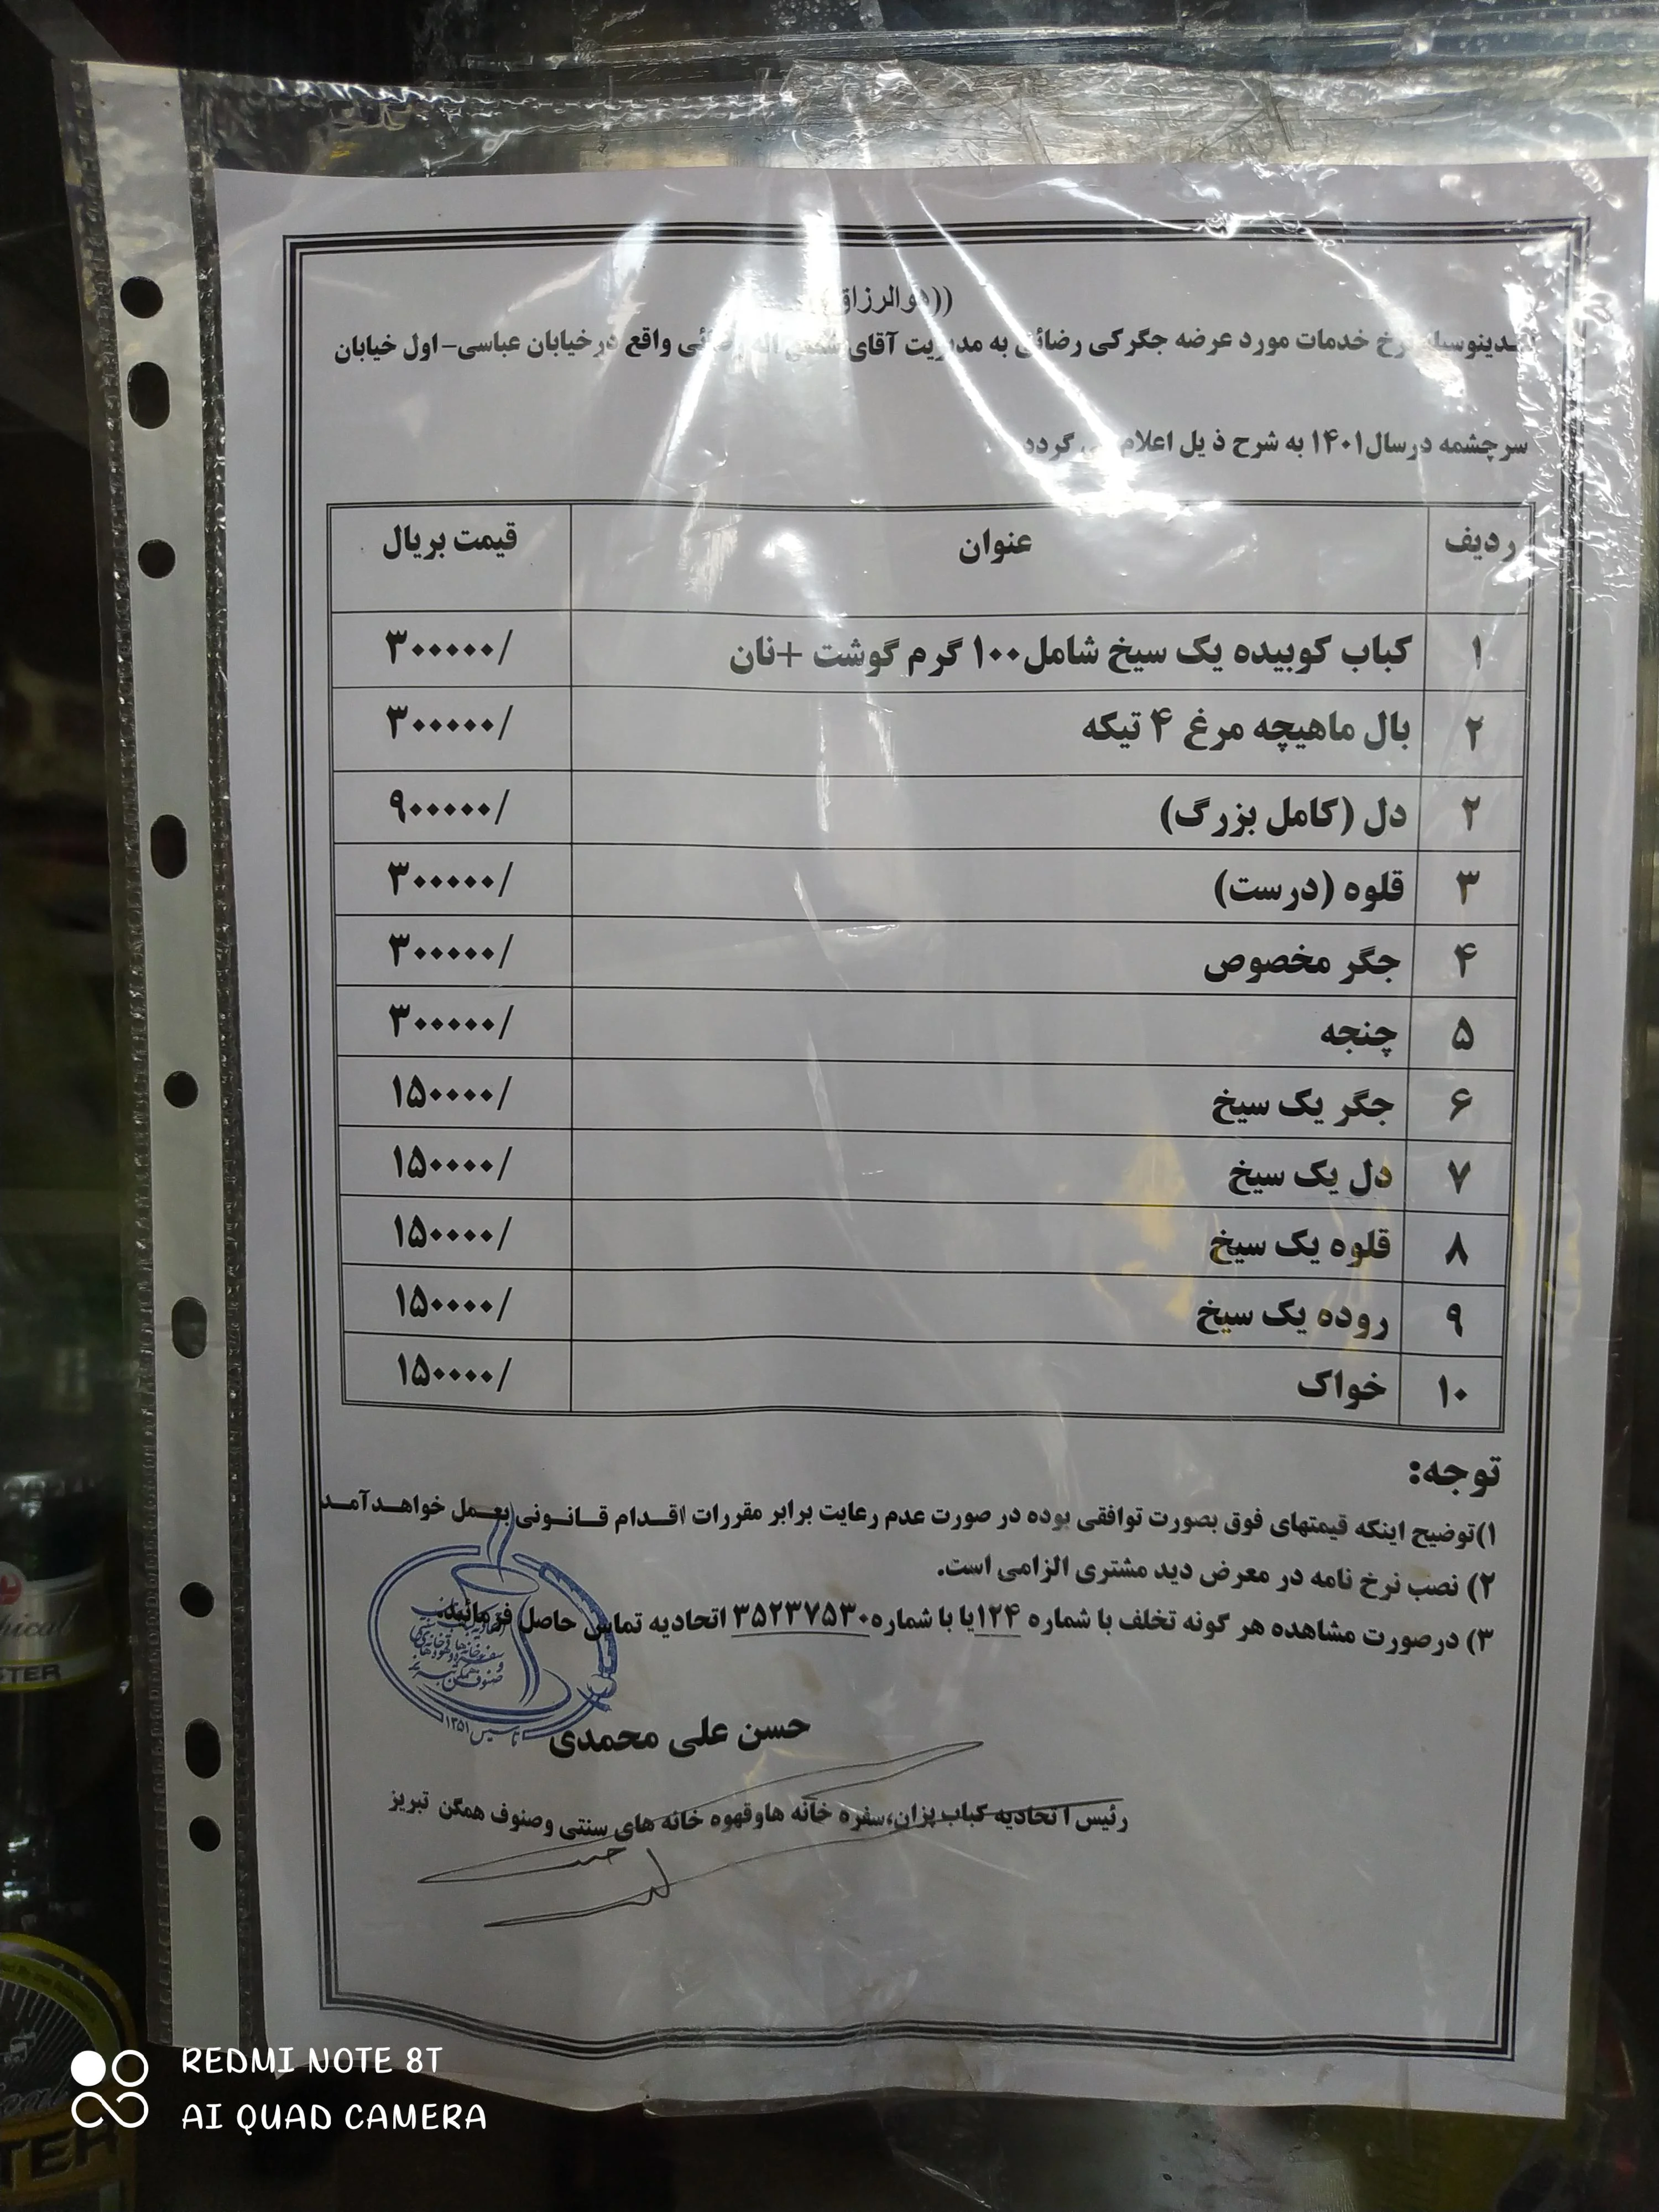 ((هوالرزاق
بدینوسیله نرخ خدمات مورد عرضه جگرکی رضائی به مدیریت آقای اله رضائی واقع درخیابان عباسی- اول خیابان
سرچشمه درسال۱۴۰۱ به شرح ذیل اعلام می گردد
ردیف عنوان قیمت بریال
۱ کباب کوبیده یک سیخ شامل۱۰۰ گرم گوشت +نان ۳۰۰۰۰۰/
۲ بال ماهیچه مرغ ۴ تیکه ۳۰۰۰۰۰/
۲ دل (کامل بزرگ) ۹۰۰۰۰۰/
۳ قلوه (درست) ۳۰۰۰۰۰/
۴ جگر مخصوص ۳۰۰۰۰۰/
۵ چنجه ۳۰۰۰۰۰/
۶ جگر یک سیخ ۱۵۰۰۰۰/
۷ دل یک سیخ ۱۵۰۰۰۰/
۸ قلوه یک سیخ ۱۵۰۰۰۰/
۹ روده یک سیخ ۱۵۰۰۰۰/
۱۰ خواک ۱۵۰۰۰۰/
توجه:
۱)توضیح اینکه قیمتهای فوق بصورت توافقی بوده در صورت عدم رعایت برابر مقررات اقدام قانونی بعمل خواهدآمد
۲) نصب نرخ نامه در معرض دید مشتری الزامی است.
۳) درصورت مشاهده هر گونه تخلف با شماره ۱۲۴یا با شماره۳۵۲۳۷۵۳۰ اتحادیه تماس حاصل فرمائید.
تاسیس ۱۳۵۱
حسن علی محمدی
رئیس اتحادیه کباب پزان،سفره خانه هاوقهوه خانه های سنتی وصنوف همگن تبریز
REDMI NOTE 8T
AI QUAD CAMERA